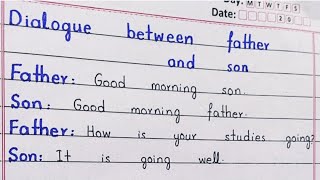 Day: M T W T F S
Date: 20
Dialogue between father
and son
Father: Good morning son.
Son: Good morning father.
Father: How is your studies going?
Son: It is going well.